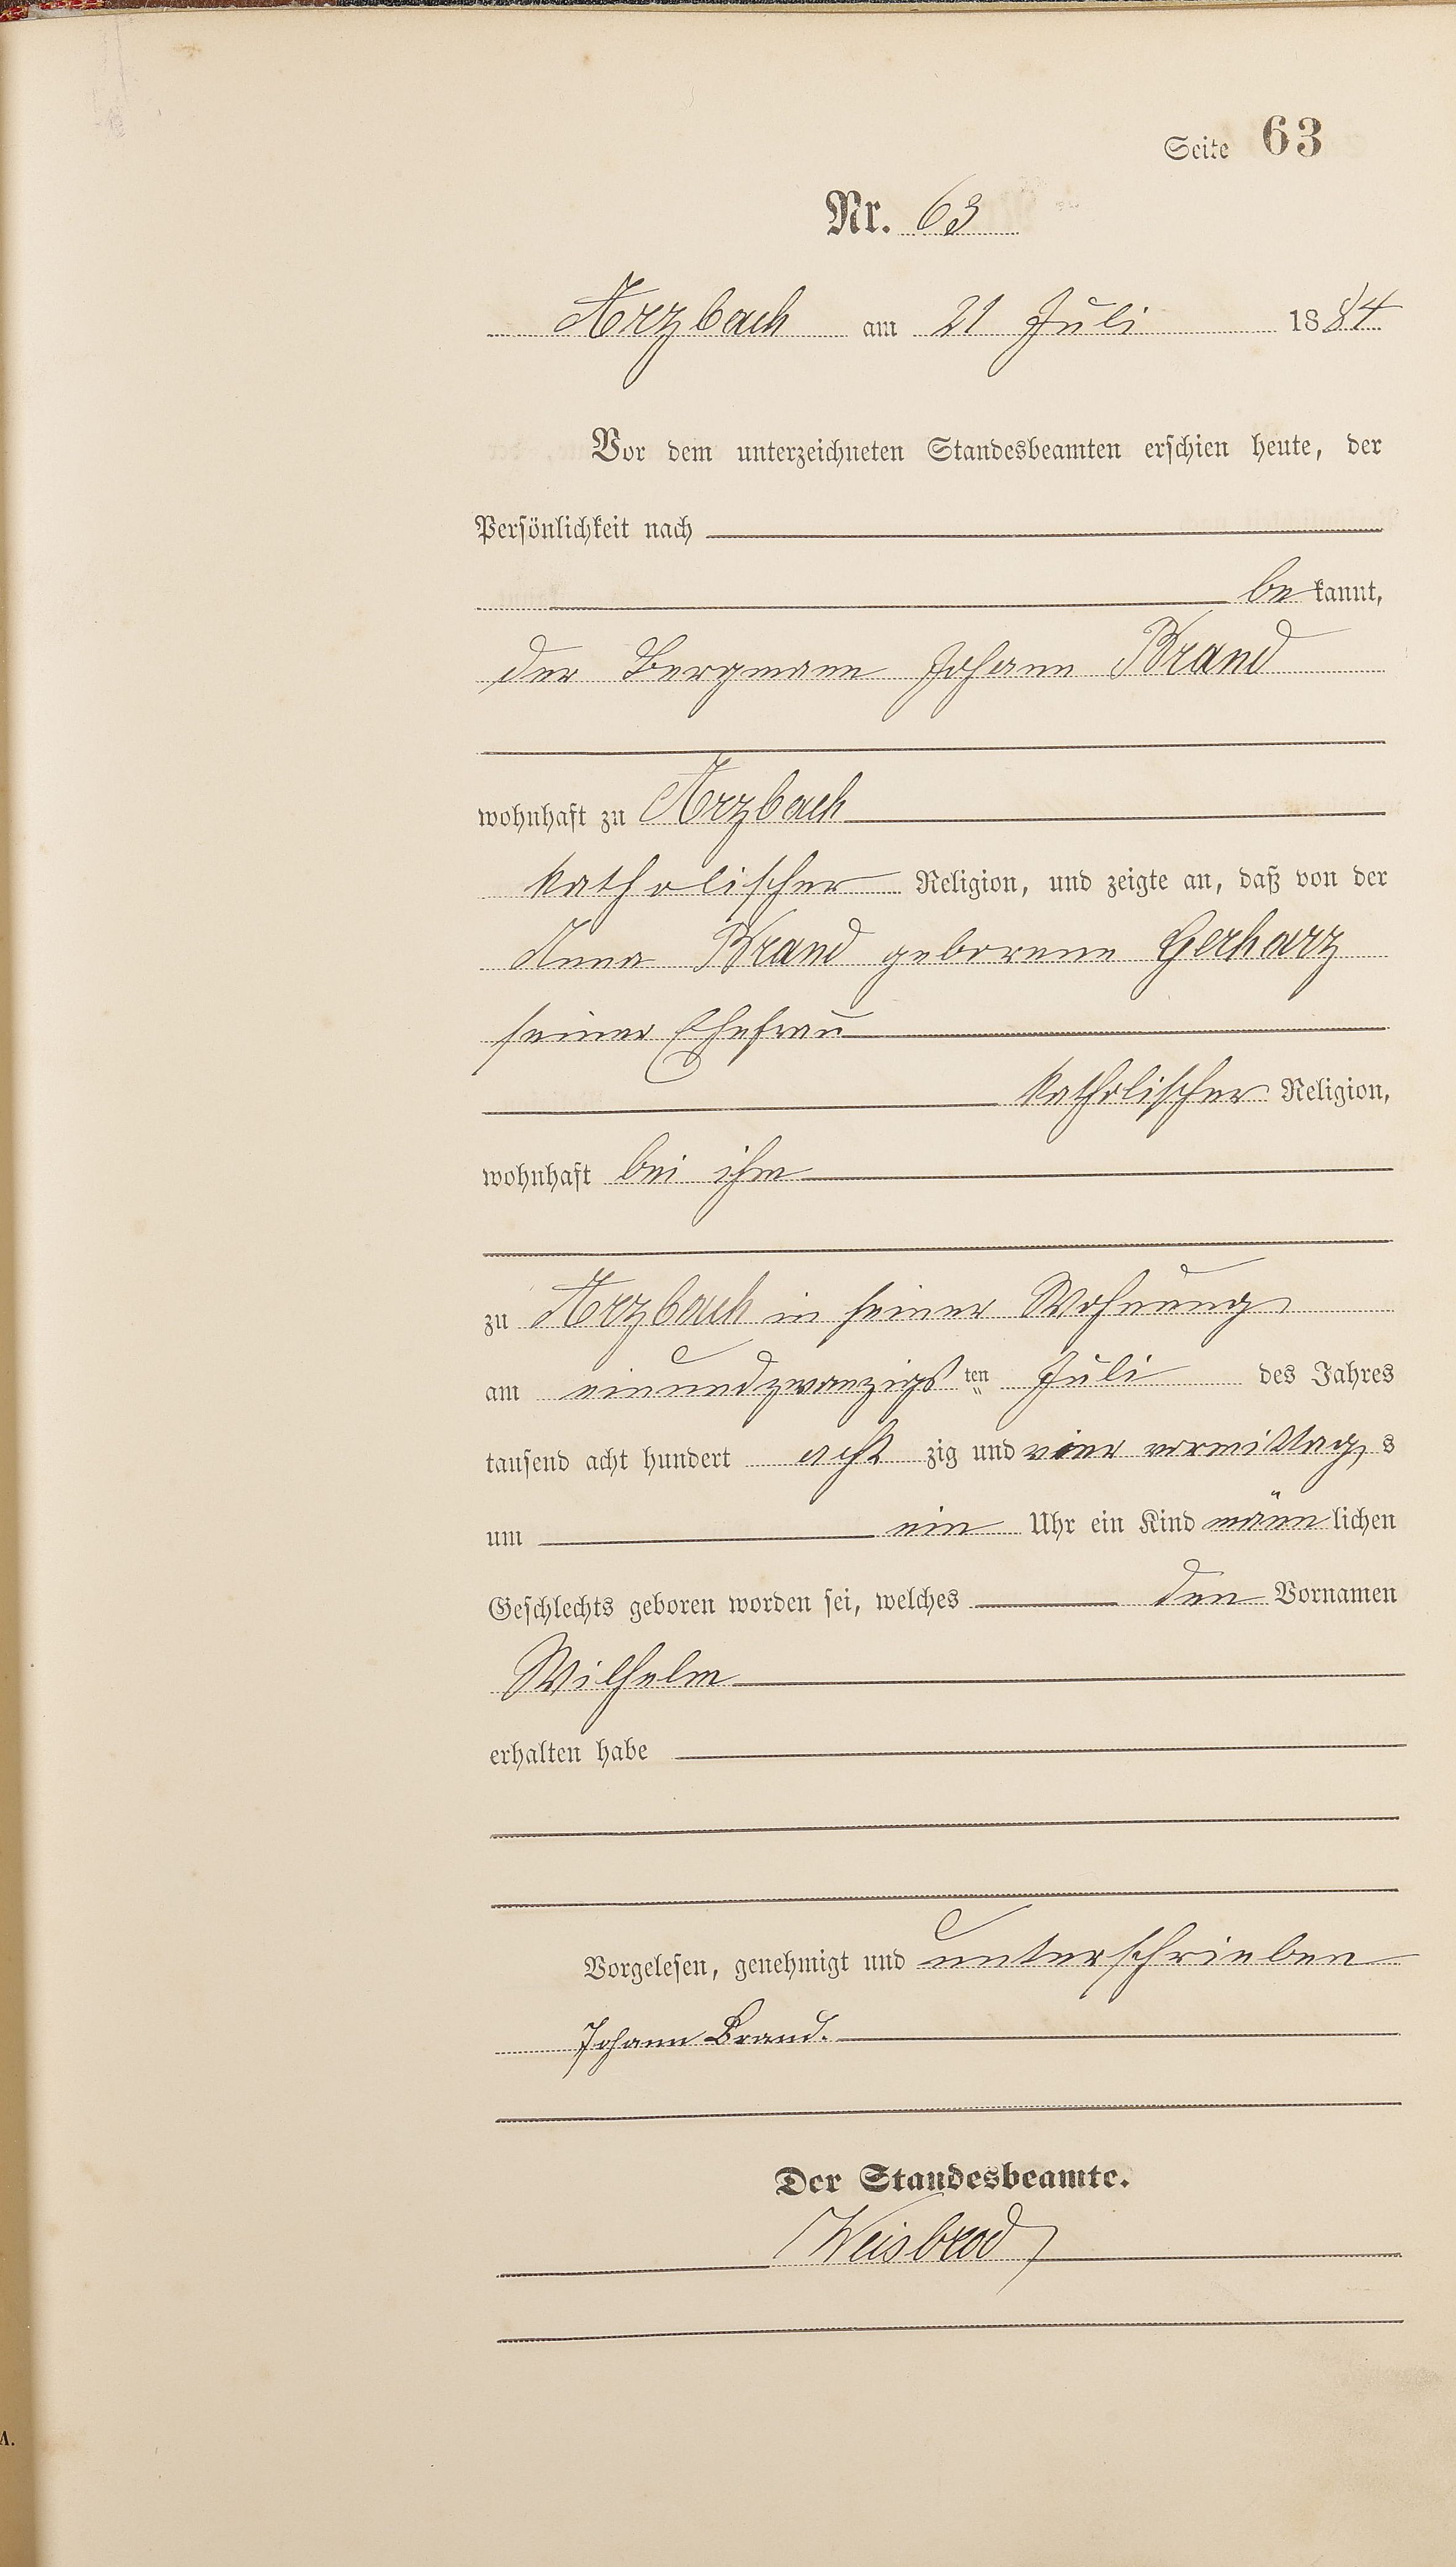 Seite 63
Nr. 63
Arzbach am 21 Juli 1884
Vor dem unterzeichneten Standesbeamten erschien heute, der
Persönlichkeit nach
be kannt,
der Bergmann Johann Brand
wohnhaft zu Arzbach
katholischer Religion, und zeigte an, daß von der
Anna Brand geborene Gerharz
seiner Ehefrau
katholischer Religion,
wohnhaft bei ihm
zu Arzbach in seiner Wohnung
am einundzwanzigsten Juli des Jahres
tausend acht hundert acht zig und vier vormittag s
um ein Uhr ein Kind männ lichen
Geschlechts geboren worden sei, welches den Vornamen
Wilhelm
erhalten habe
Vorgelesen, genehmigt und unterschrieben
Johann Brand.
Der Standesbeamte.
Weisbrod
A.